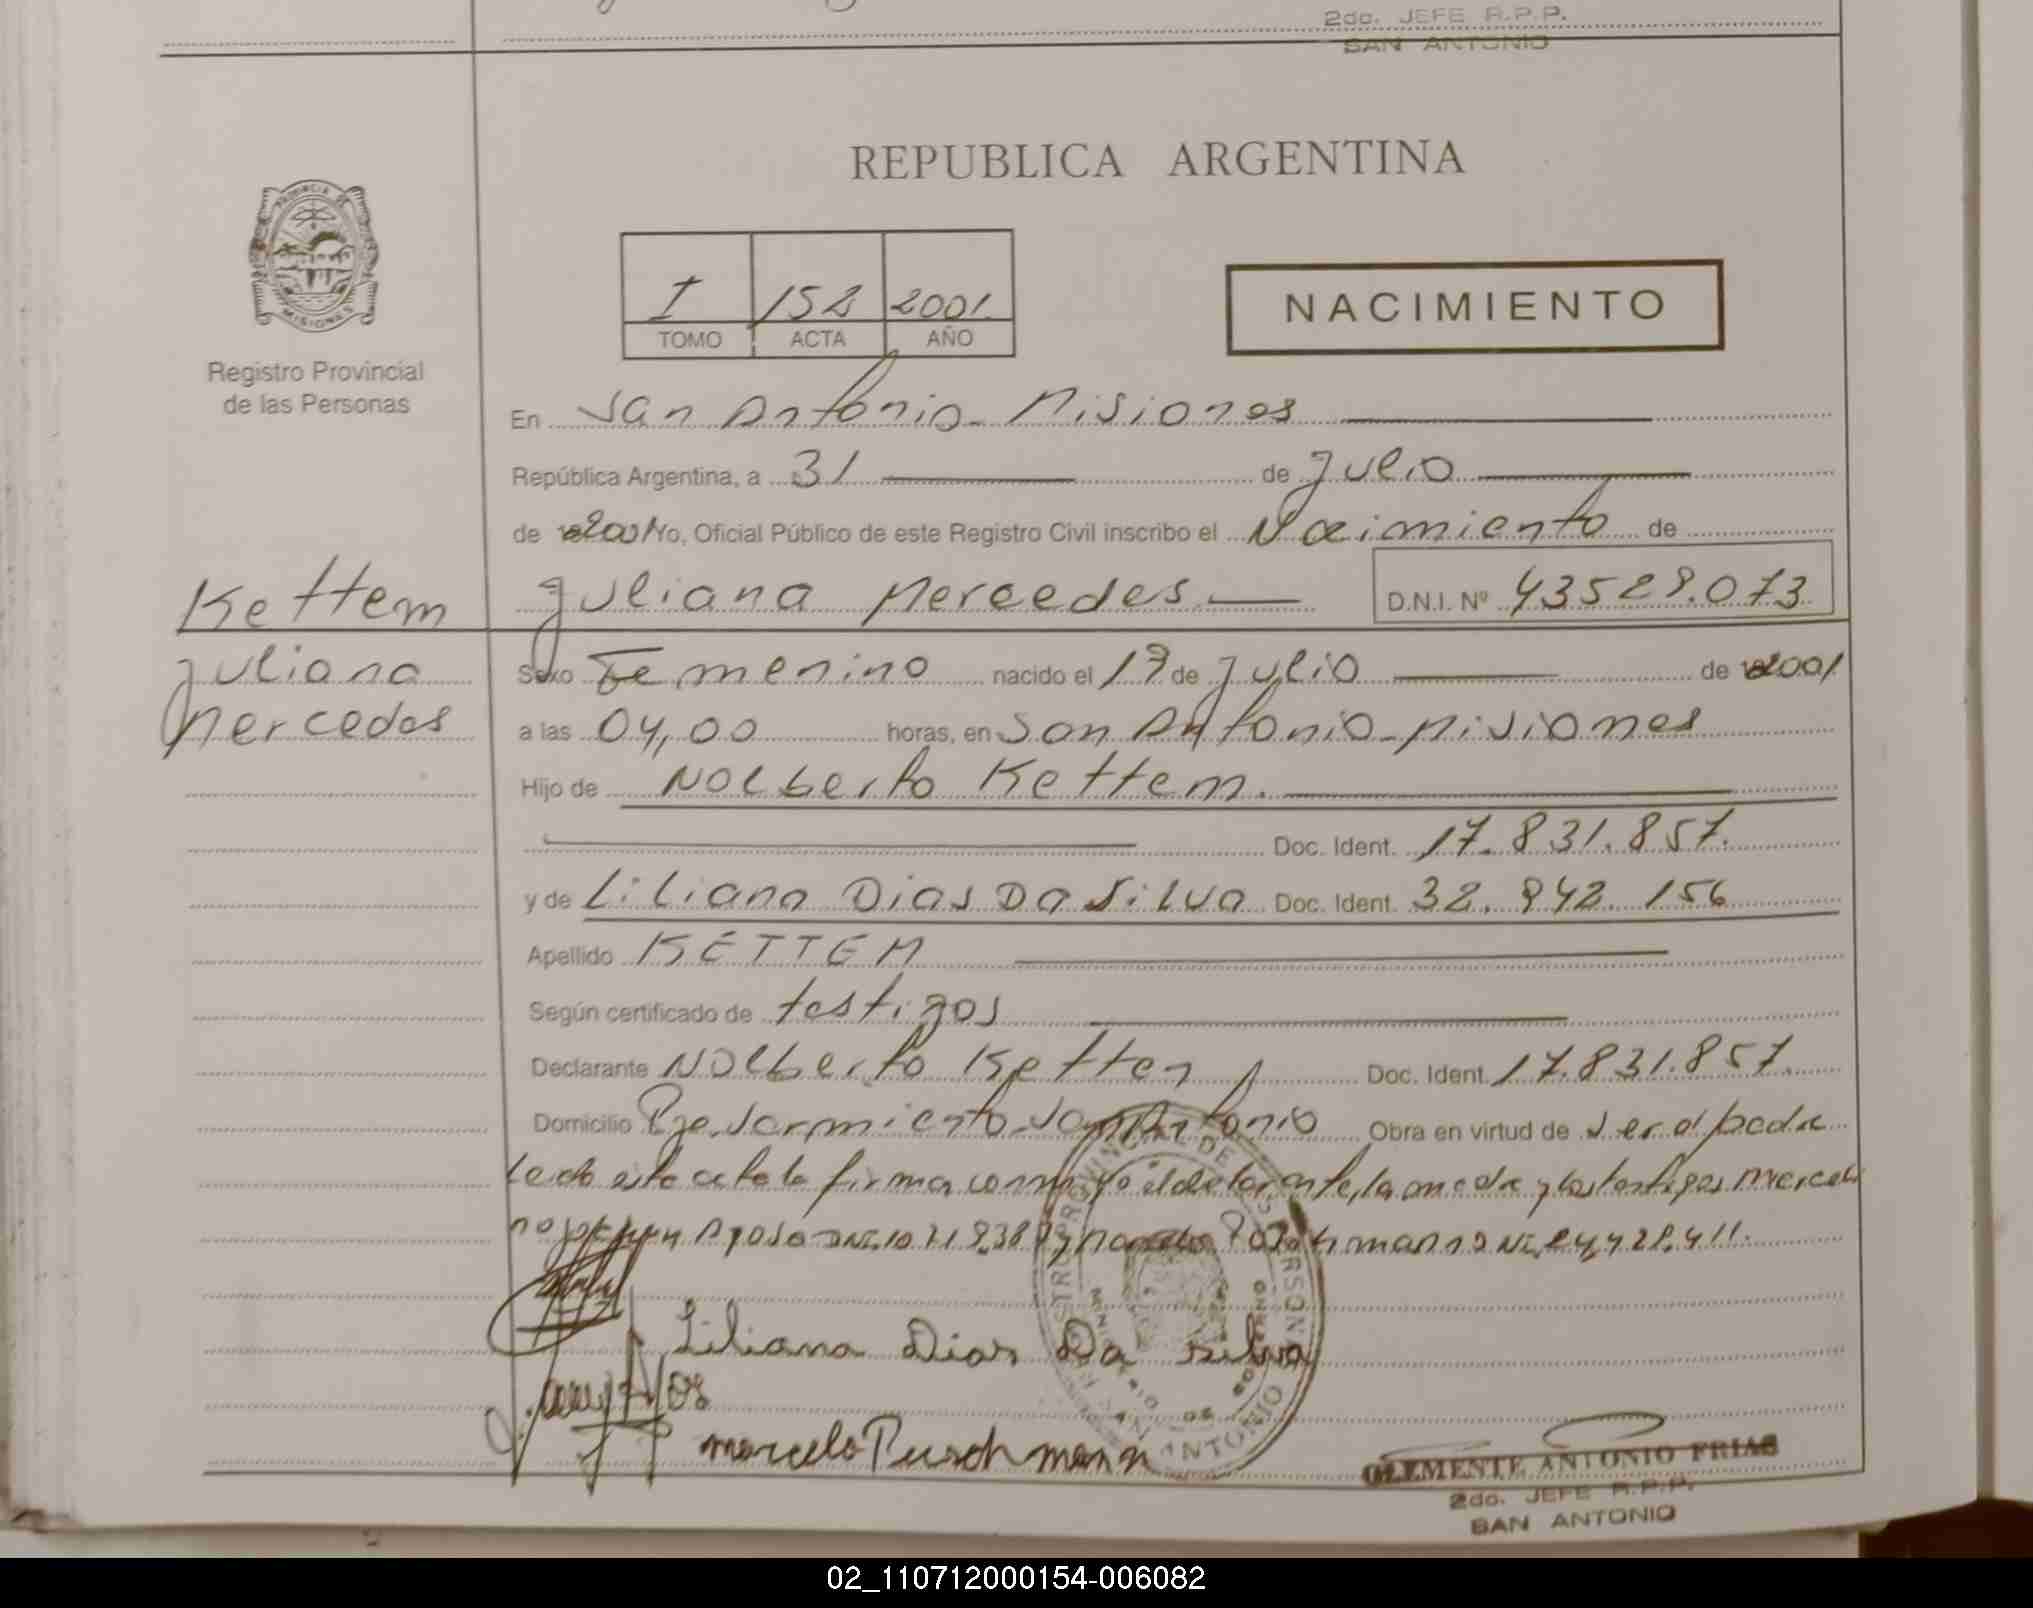 2do. JEFE R.P.P.
SAN ANTONIO
REPUBLICA ARGENTINA
PROVINCIA DE
MISIONES
Registro Provincial
de las Personas
I 152 2001
TOMO ACTA AÑO
NACIMIENTO
En San Antonio - Misiones
República Argentina, a 31 de Julio
de 2001 Yo, Oficial Público de este Registro Civil inscribo el Nacimiento de
Kettem
Juliana Mercedes D.N.I. Nº 43528.073
Juliana
Mercedes
Sexo Femenino nacido el 17 de Julio de 2001
a las 04,00 horas, en San Antonio - Misiones
Hijo de Nolberto Kettem.
Doc. Ident. 17.831.857.
y de Liliana Dias Da Silva Doc. Ident. 32.842.156
Apellido KETTEM
Según certificado de testigos
Declarante Nolberto Ketten Doc. Ident. 17.831.857.
Domicilio Pje. Sarmiento - San Antonio Obra en virtud de ser el padre
Leida esta acta la firma conmigo el declarante, la madre y los testigos Marceli
no Ayosa DNI. y Marcelo Puschmann DNI. 24.428.411.
Liliana Dias Da Silva
marcelo Puschmann
CLEMENTE ANTONIO FRIAS
2do. JEFE R.P.P.
SAN ANTONIO
02_110712000154-006082